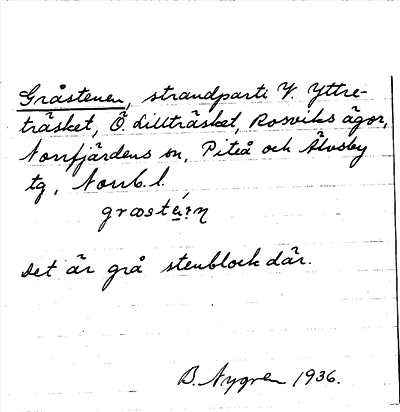 Gråstenen, strandparti V. Yttre-
träsket, Ö. Lillträsket, Rosviks ägor,
Norrfjärdens sn, Piteå och Älvsby
tg, Norrb. l.
Det är grå stenblock där.
B. Nygren 1936.